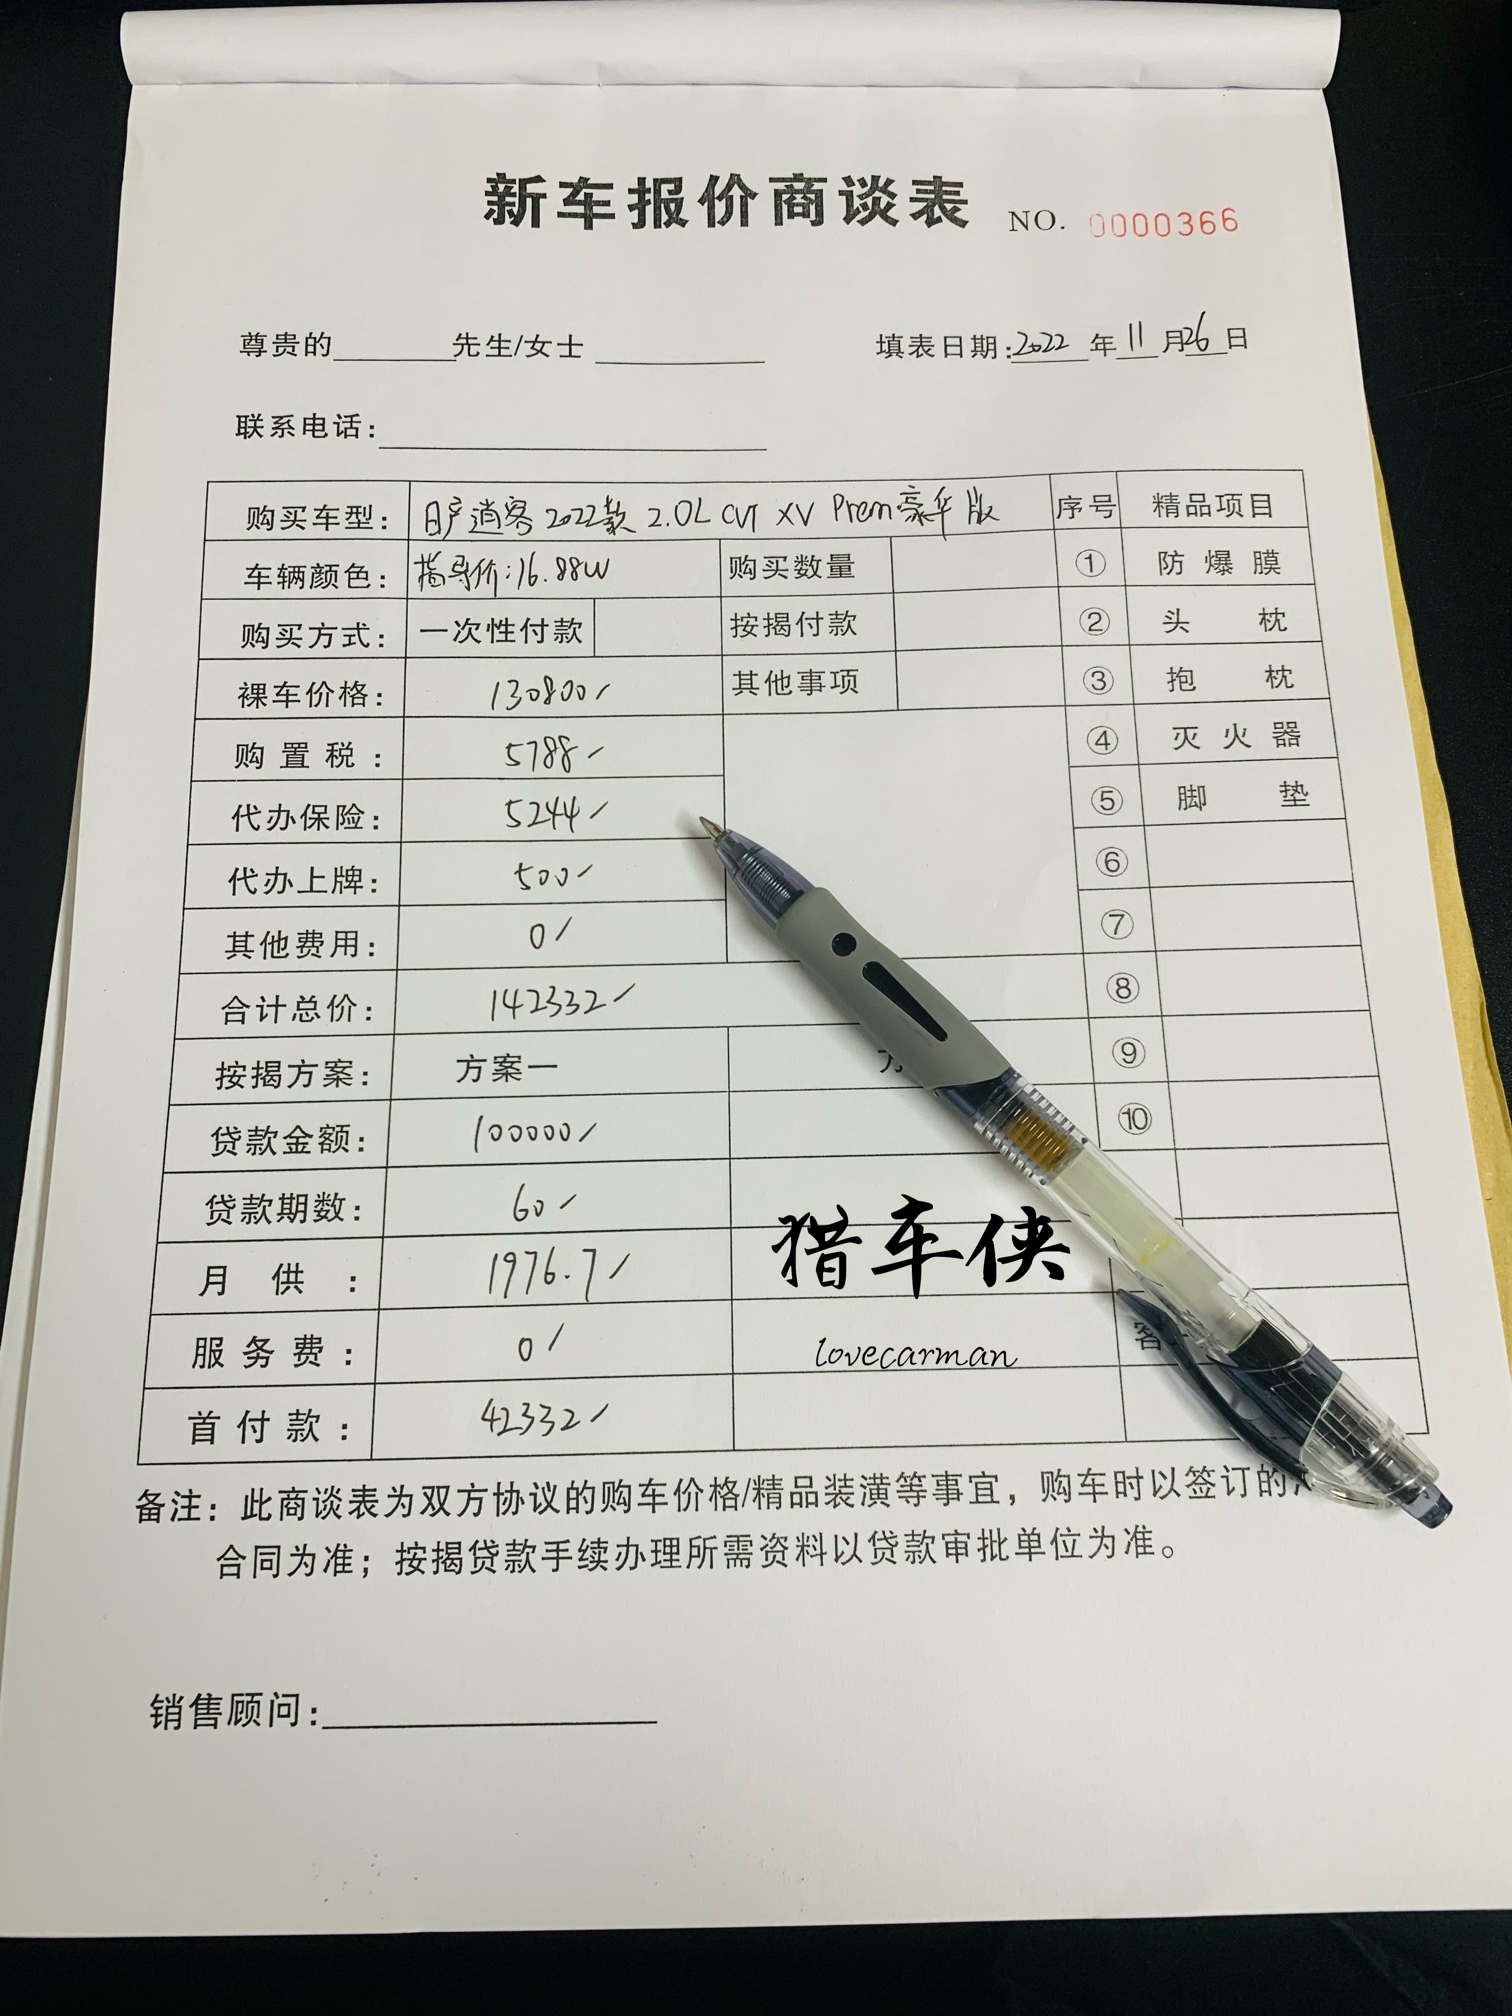 新车报价商谈表 NO. 0000366
尊贵的 先生/女士 填表日期:2022年11月26日
联系电话:
购买车型: 日产逍客2022款 2.0L CVT XV Prem豪华版 序号 精品项目
车辆颜色: 指导价:16.88W 购买数量 ① 防爆膜
购买方式: 一次性付款 按揭付款 ② 头枕
裸车价格: 130800/ 其他事项 ③ 抱枕
购置税: 5788/ ④ 灭火器
代办保险: 5244/ ⑤ 脚垫
代办上牌: 500/ ⑥
其他费用: 0/ ⑦
合计总价: 142332/ ⑧
按揭方案: 方案一 ⑨
贷款金额: 100000/ ⑩
贷款期数: 60/
月供: 1976.7/ 猎车侠
服务费: 0/ lovecarman 客
首付款: 42332/
备注: 此商谈表为双方协议的购车价格/精品装潢等事宜，购车时以签订的
合同为准；按揭贷款手续办理所需资料以贷款审批单位为准。
销售顾问: